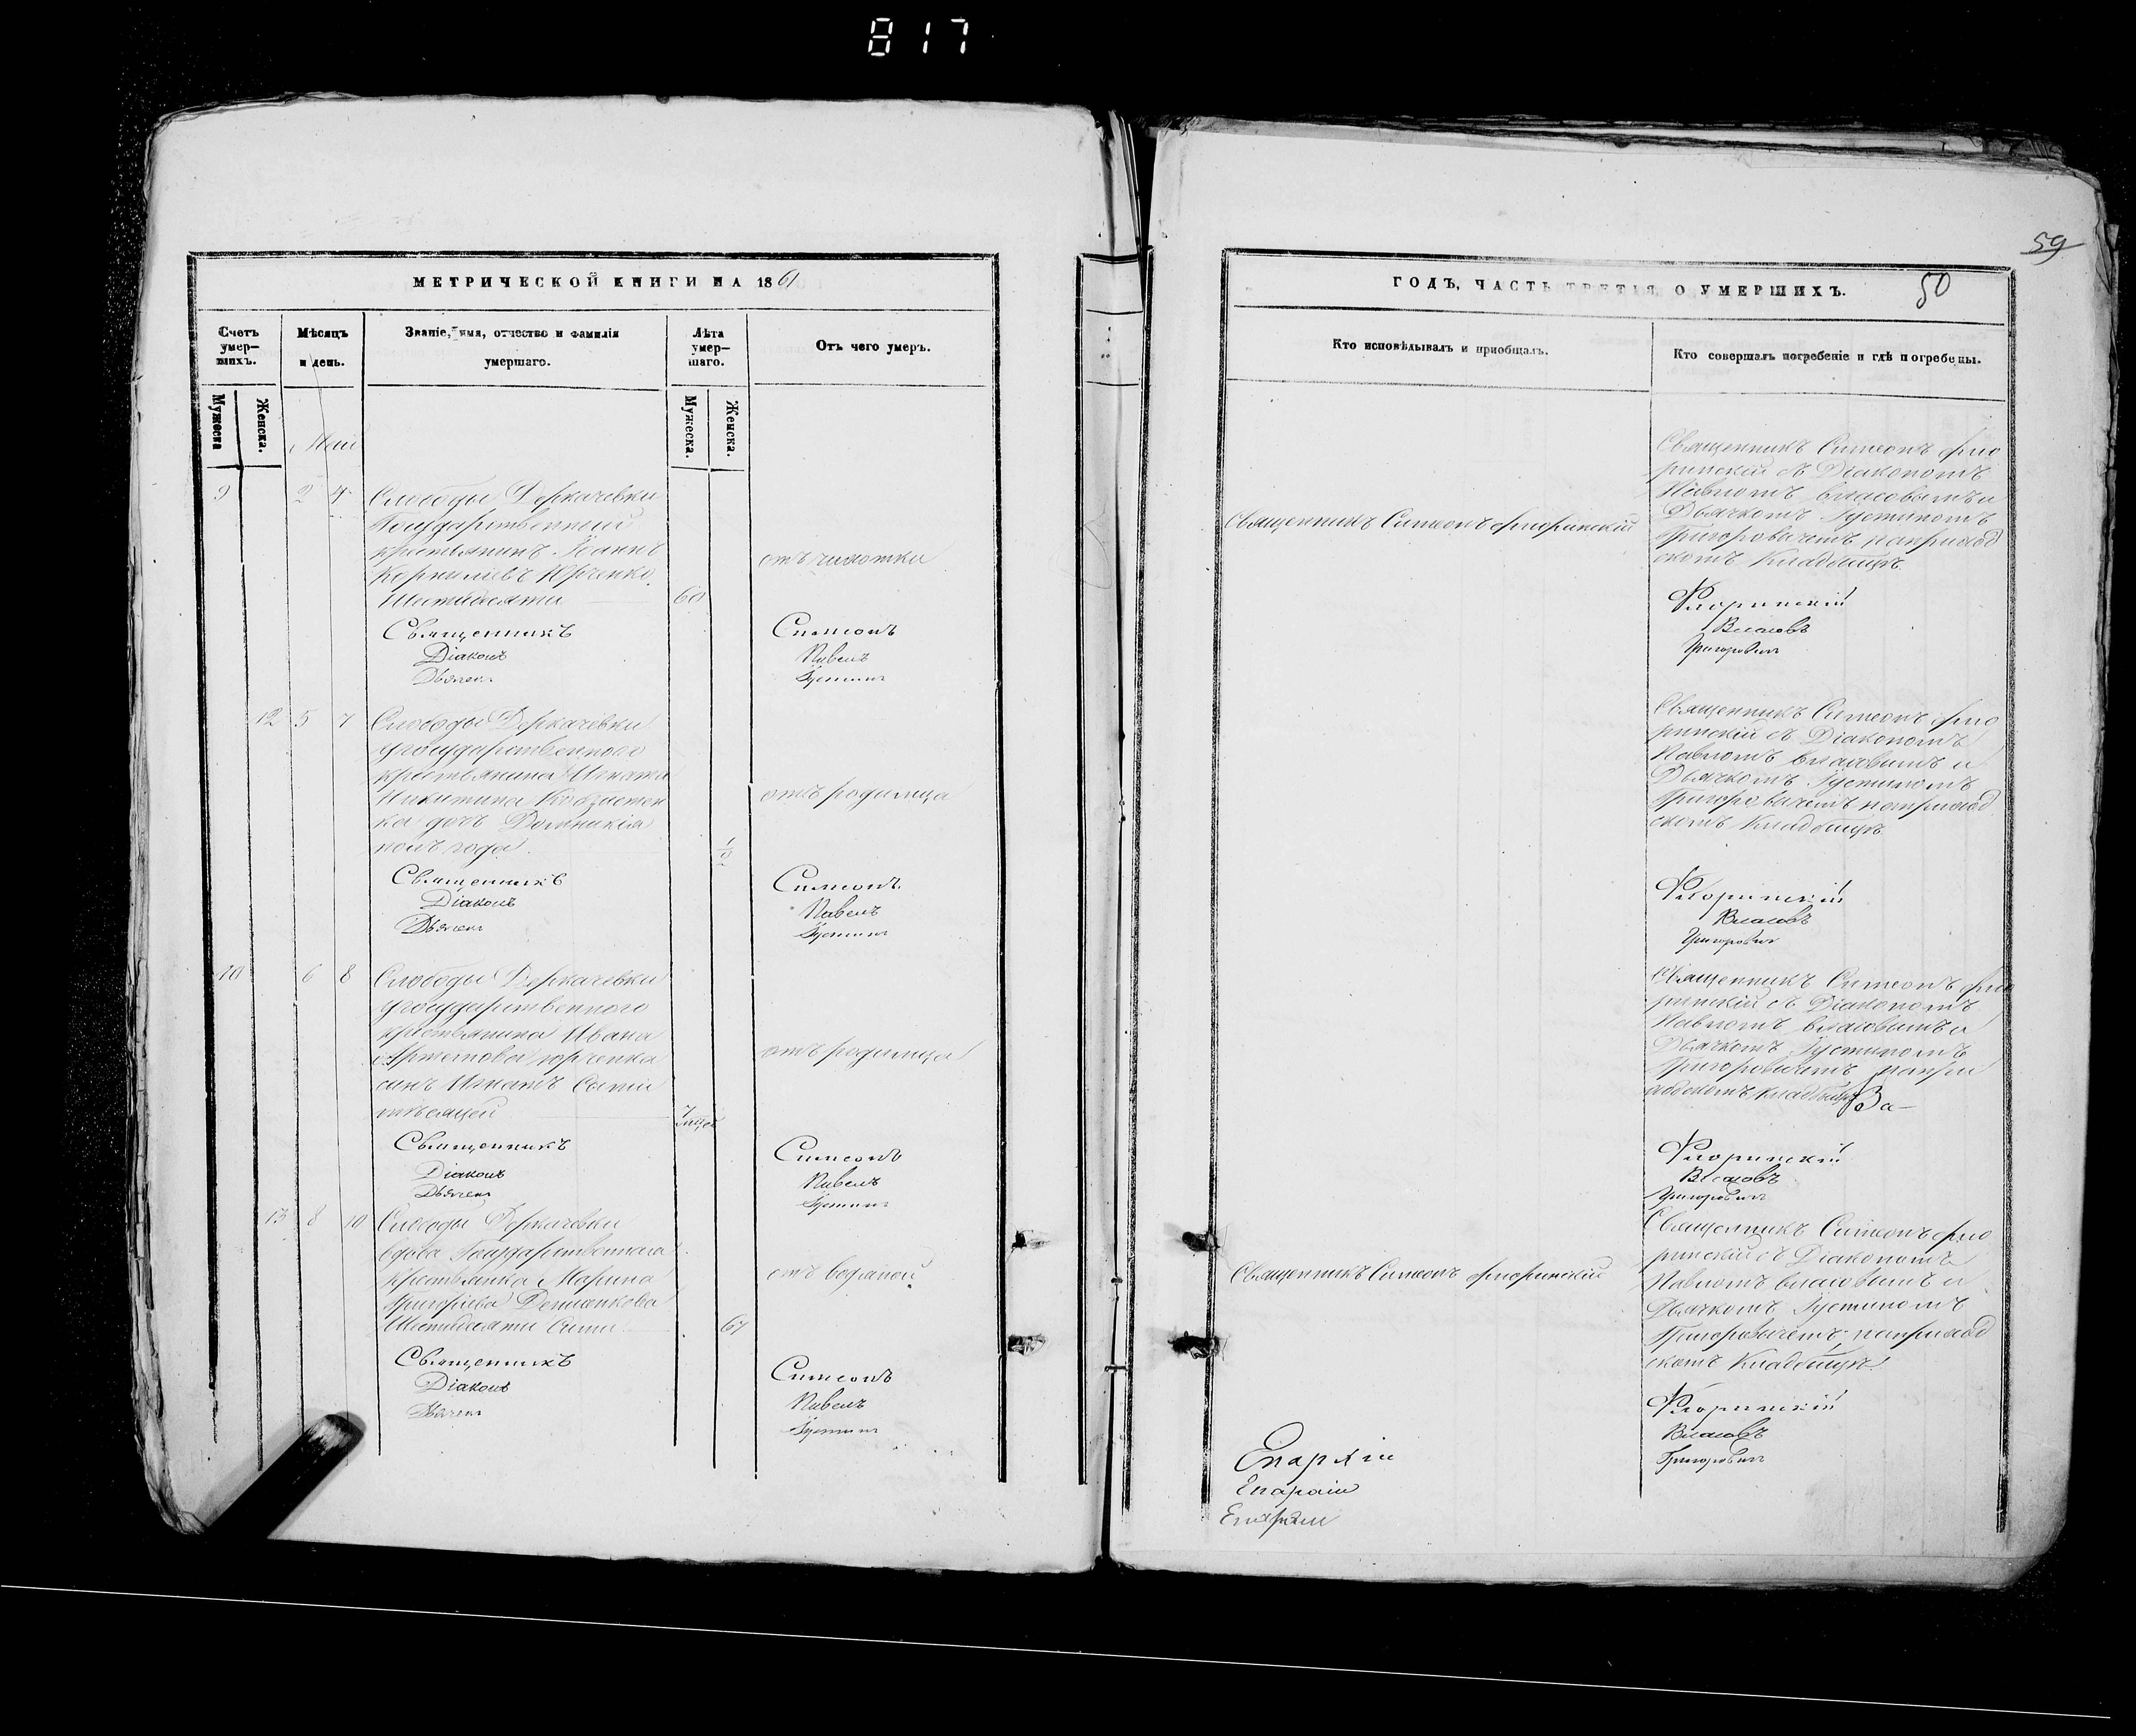 817
МЕТРИЧЕСКОЙ КНИГИ НА 1861
Счетъ умер-шихъ.
Мѣсяцъ и день.
Званіе, имя, отчество и фамилія умершаго.
Лѣта умер-шаго.
Отъ чего умеръ.
Мужеска
Женска.
Мужеска.
Женска.
Май
9 2 4 Слободы Деркачевки
Государственный
крестьянинъ Іоаннъ
Корнилієвъ Юрченко
Шестидесяти 60
отъ чахотки
Священникъ Симеонъ
Діаконъ Павелъ
Дьячекъ Іустинъ
12 5 7 Слободы Деркачевки
государственного
крестьянина Игната
Никитина
ка дочь Домникія
полъ года 1/2
отъ родимца
Священникъ Симеонъ
Діаконъ Павелъ
Дьячекъ Іустинъ
10 6 8 Слободы Деркачевки
государственного
крестьянина Ивана
Артемова Юрченка
сынъ Игнатъ Семи
мѣсяцей 7
отъ родимца
Священникъ Симеонъ
Діаконъ Павелъ
Дьячекъ Іустинъ
13 8 10 Слободы Деркачевки
вдова Государственная
крестьянка Марина
Григоріева
Шестидесяти Семи 67
отъ водяной
Священникъ Симеонъ
Діаконъ Павелъ
Дьячекъ Іустинъ
59
ГОДЪ, ЧАСТЬ ТРЕТІЯ, О УМЕРШИХЪ.
50
Кто исповѣдывалъ и пріобщалъ.
Кто совершалъ погребеніе и гдѣ погребены.
Священникъ Симеонъ Флоринскій
Священникъ Симеонъ Фло
ринскій съ Діакономъ
Павломъ Власовымъ и
Дьячкомъ Іустиномъ
Григоровичемъ наприход
скомъ Кладбищѣ
Флоринскій
Власовъ
Григоровичъ
Священникъ Симеонъ Фло
ринскій съ Діакономъ
Павломъ Власовымъ и
Дьячкомъ Іустиномъ
Григоровичемъ наприход
скомъ Кладбищѣ
Флоринскій
Власовъ
Григоровичъ
Священникъ Симеонъ Фло
ринскій съ Діакономъ
Павломъ Власовымъ и
Дьячкомъ Іустиномъ
Григоровичемъ напри
ходскомъ кладбищѣ
За-
Флоринскій
Власовъ
Григоровичъ
Священникъ Симеонъ Флоринскій
Священникъ Симеонъ Фло
ринскій съ Діакономъ
Павломъ Власовымъ и
Дьячкомъ Іустиномъ
Григоровичемъ наприход
скомъ Кладбищѣ
Флоринскій
Власовъ
Григоровичъ
Епархіи
Епархіи
Епархіи